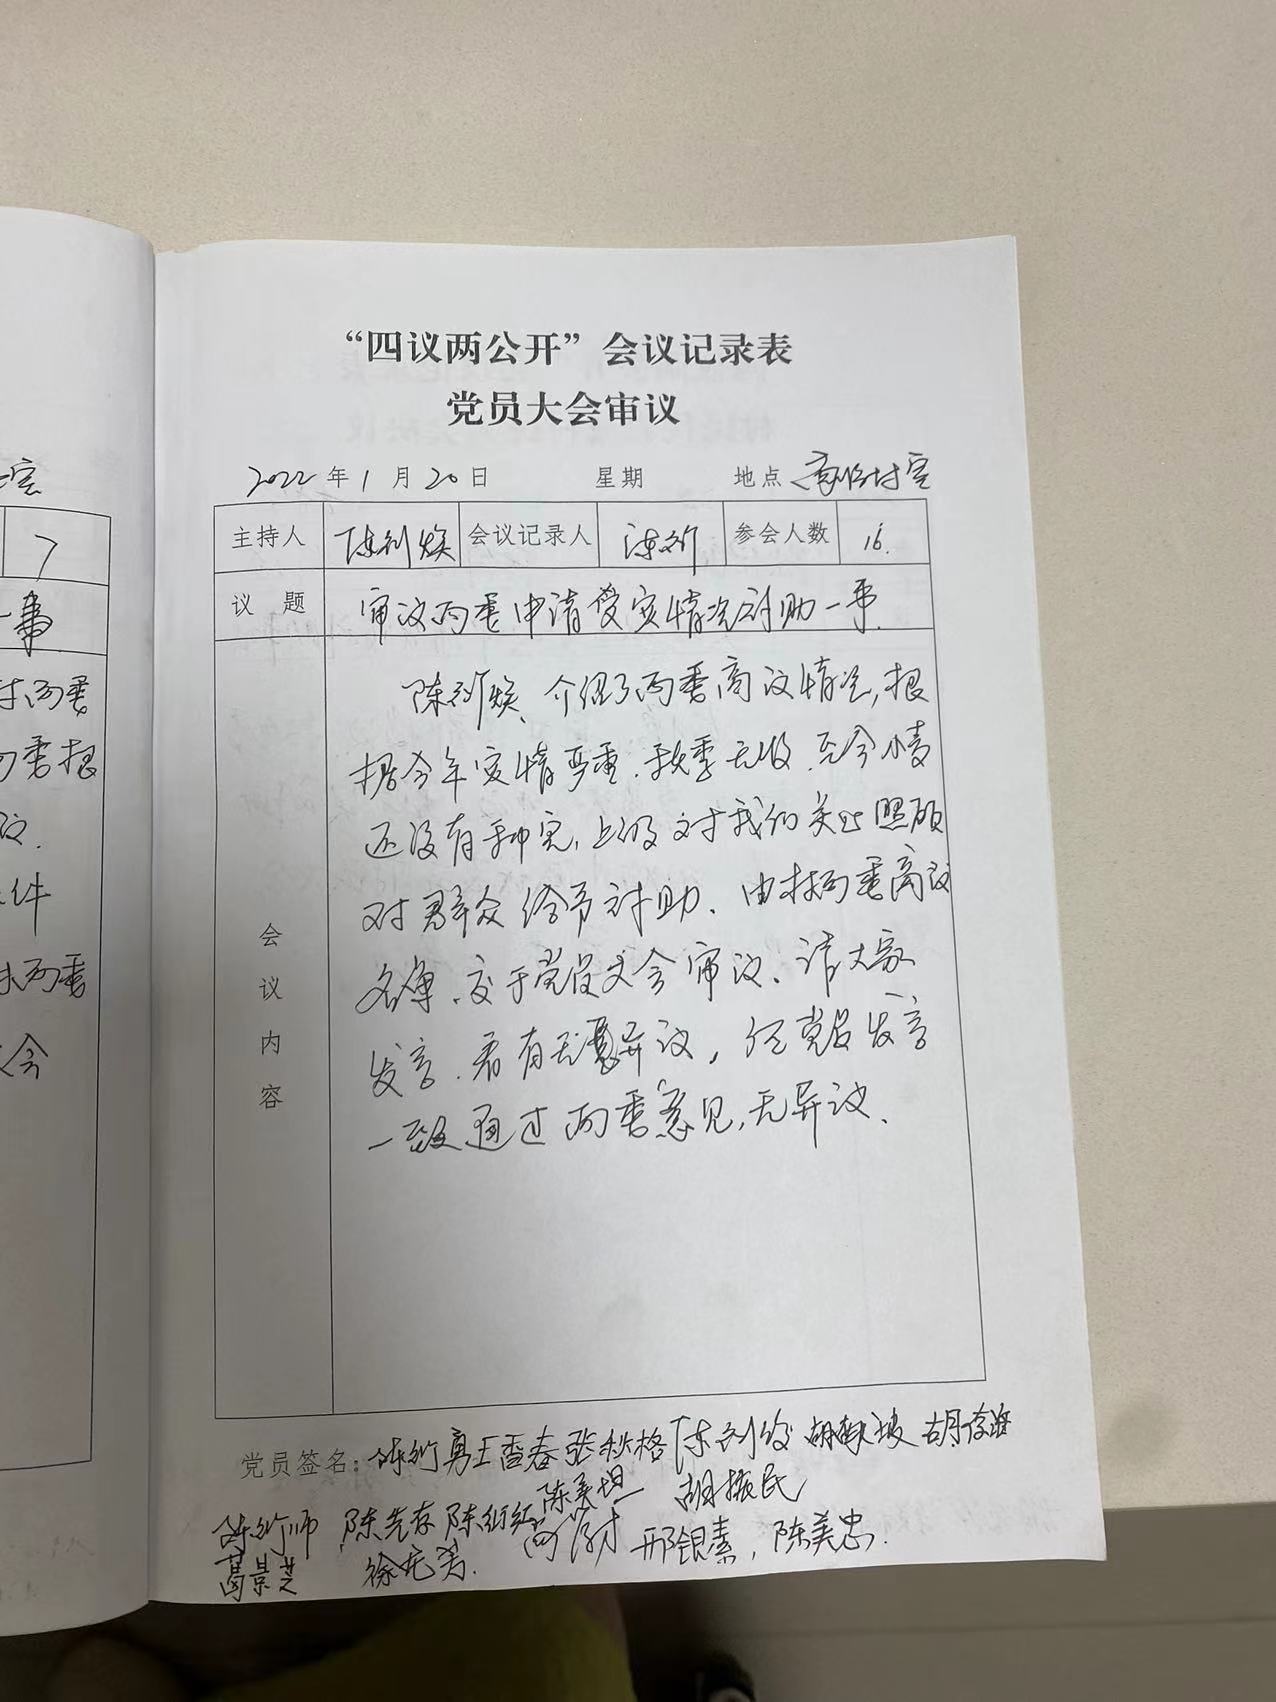 室
7
一事
村两委
两委根
议.
件
村两委
大会
“四议两公开”会议记录表
党员大会审议
2022年1月20日 星期 地点 村室
主持人 陈衍焕 会议记录人 参会人数 16.
议 题 审议两委申请受灾情况补助一事.
陈衍焕、介绍了两委商议情况,根
据今年灾情严重.秋季无收.至今小麦
还没有种完,上级对我们关心照顾
对群众给予补助、由村两委商议
名单、交于党员大会审议、请大家
发言.看有无异议,经党员发言
一致通过两委意见,无异议.
会议内容
党员签名: 陈衍勇 王香春 张秋格
陈美坦 胡振民
陈衍师 陈先存 陈衍红 邢银素, 陈美忠.
葛景芝